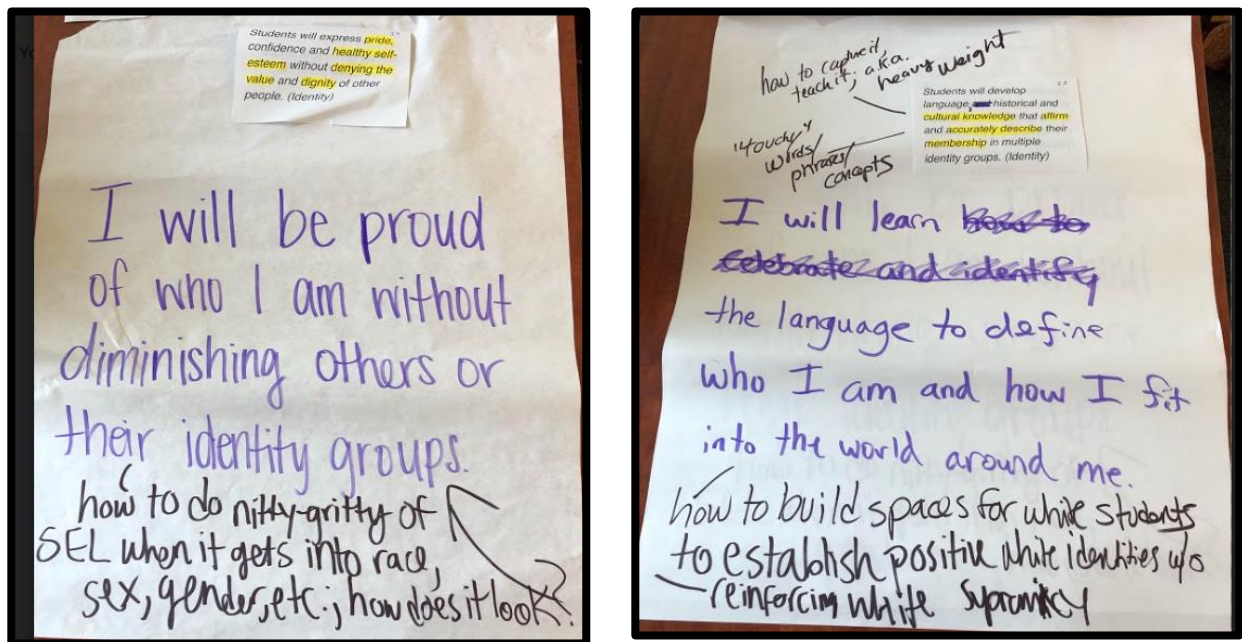 Students will express pride,
confidence and healthy self-
esteem without denying the
value and dignity of other
people. (Identity)
I will be proud
of who I am without
diminishing others or
their identity groups.
how to do nitty-gritty of
SEL when it gets into race,
sex, gender, etc.; how does it look?
how to capture it,
teach it; a.k.a.
heavy weight
Students will develop
language, historical and
cultural knowledge that affirm
and accurately describe their
membership in multiple
identity groups. (Identity)
"touchy"
words/
phrases/
concepts
I will learn how to
celebrate and identify
the language to define
who I am and how I fit
into the world around me.
how to build spaces for white students
to establish positive white identities w/o
reinforcing white supremicy